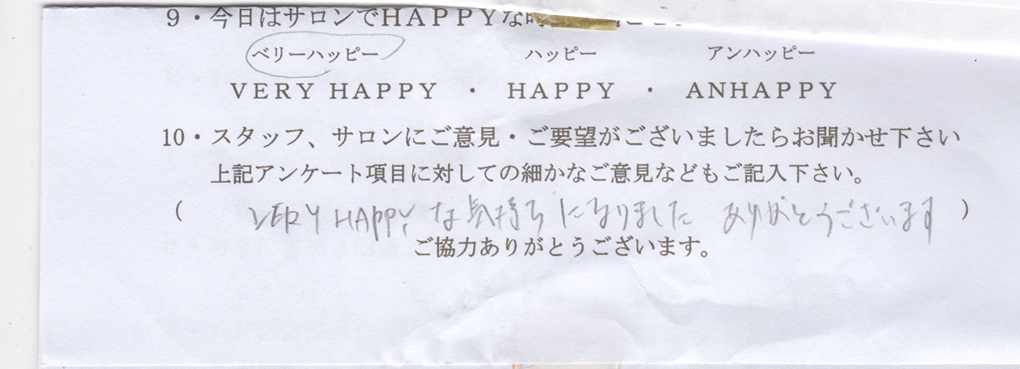 9・今日はサロンでHAPPYな
ベリーハッピー ハッピー アンハッピー
VERY HAPPY ・ HAPPY ・ ANHAPPY
10・スタッフ、サロンにご意見・ご要望がございましたらお聞かせ下さい
上記アンケート項目に対しての細かなご意見などもご記入下さい。
( VERY HAPPY な気持ちになりました ありがとうございます )
ご協力ありがとうございます。